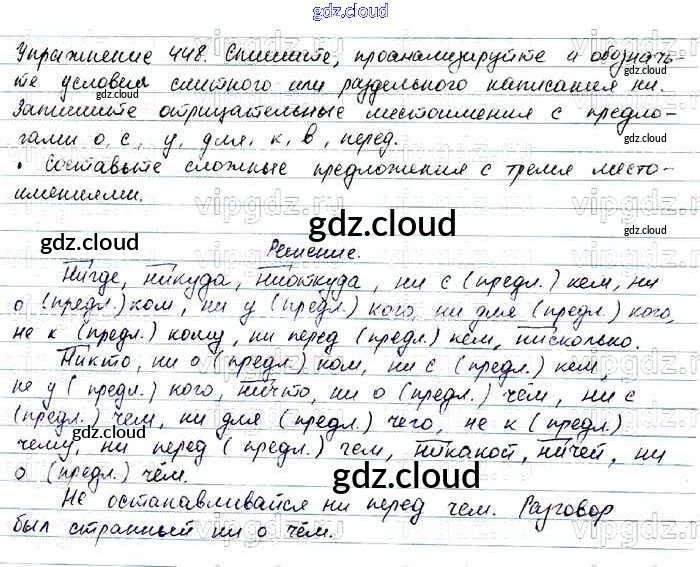 gdz.cloud
Упражнение 448. Спишите, проанализируйте и обозначь-
те условия слитного или раздельного написания ни.
Запишите отрицательные местоимения с предло-
гами о, с, у, для, к, в, перед.
• Составьте сложные предложения с тремя место-
имениями.
Решение.
Нигде, никуда, ниоткуда, ни с (предл.) кем, ни
о (предл.) ком, ни у (предл.) кого, ни для (предл.) кого,
не к (предл.) кому, ни перед (предл.) кем, нисколько.
Никто, ни о (предл.) ком, ни с (предл.) кем,
не у (предл.) кого, ничто, ни о (предл.) чём, ни с
(предл.) чем, ни для (предл.) чего, не к (предл.)
чему, ни перед (предл.) чем, никакой, ничей, ни
о (предл.) чём.
Не останавливайся ни перед чем. Разговор
был странный ни о чём.